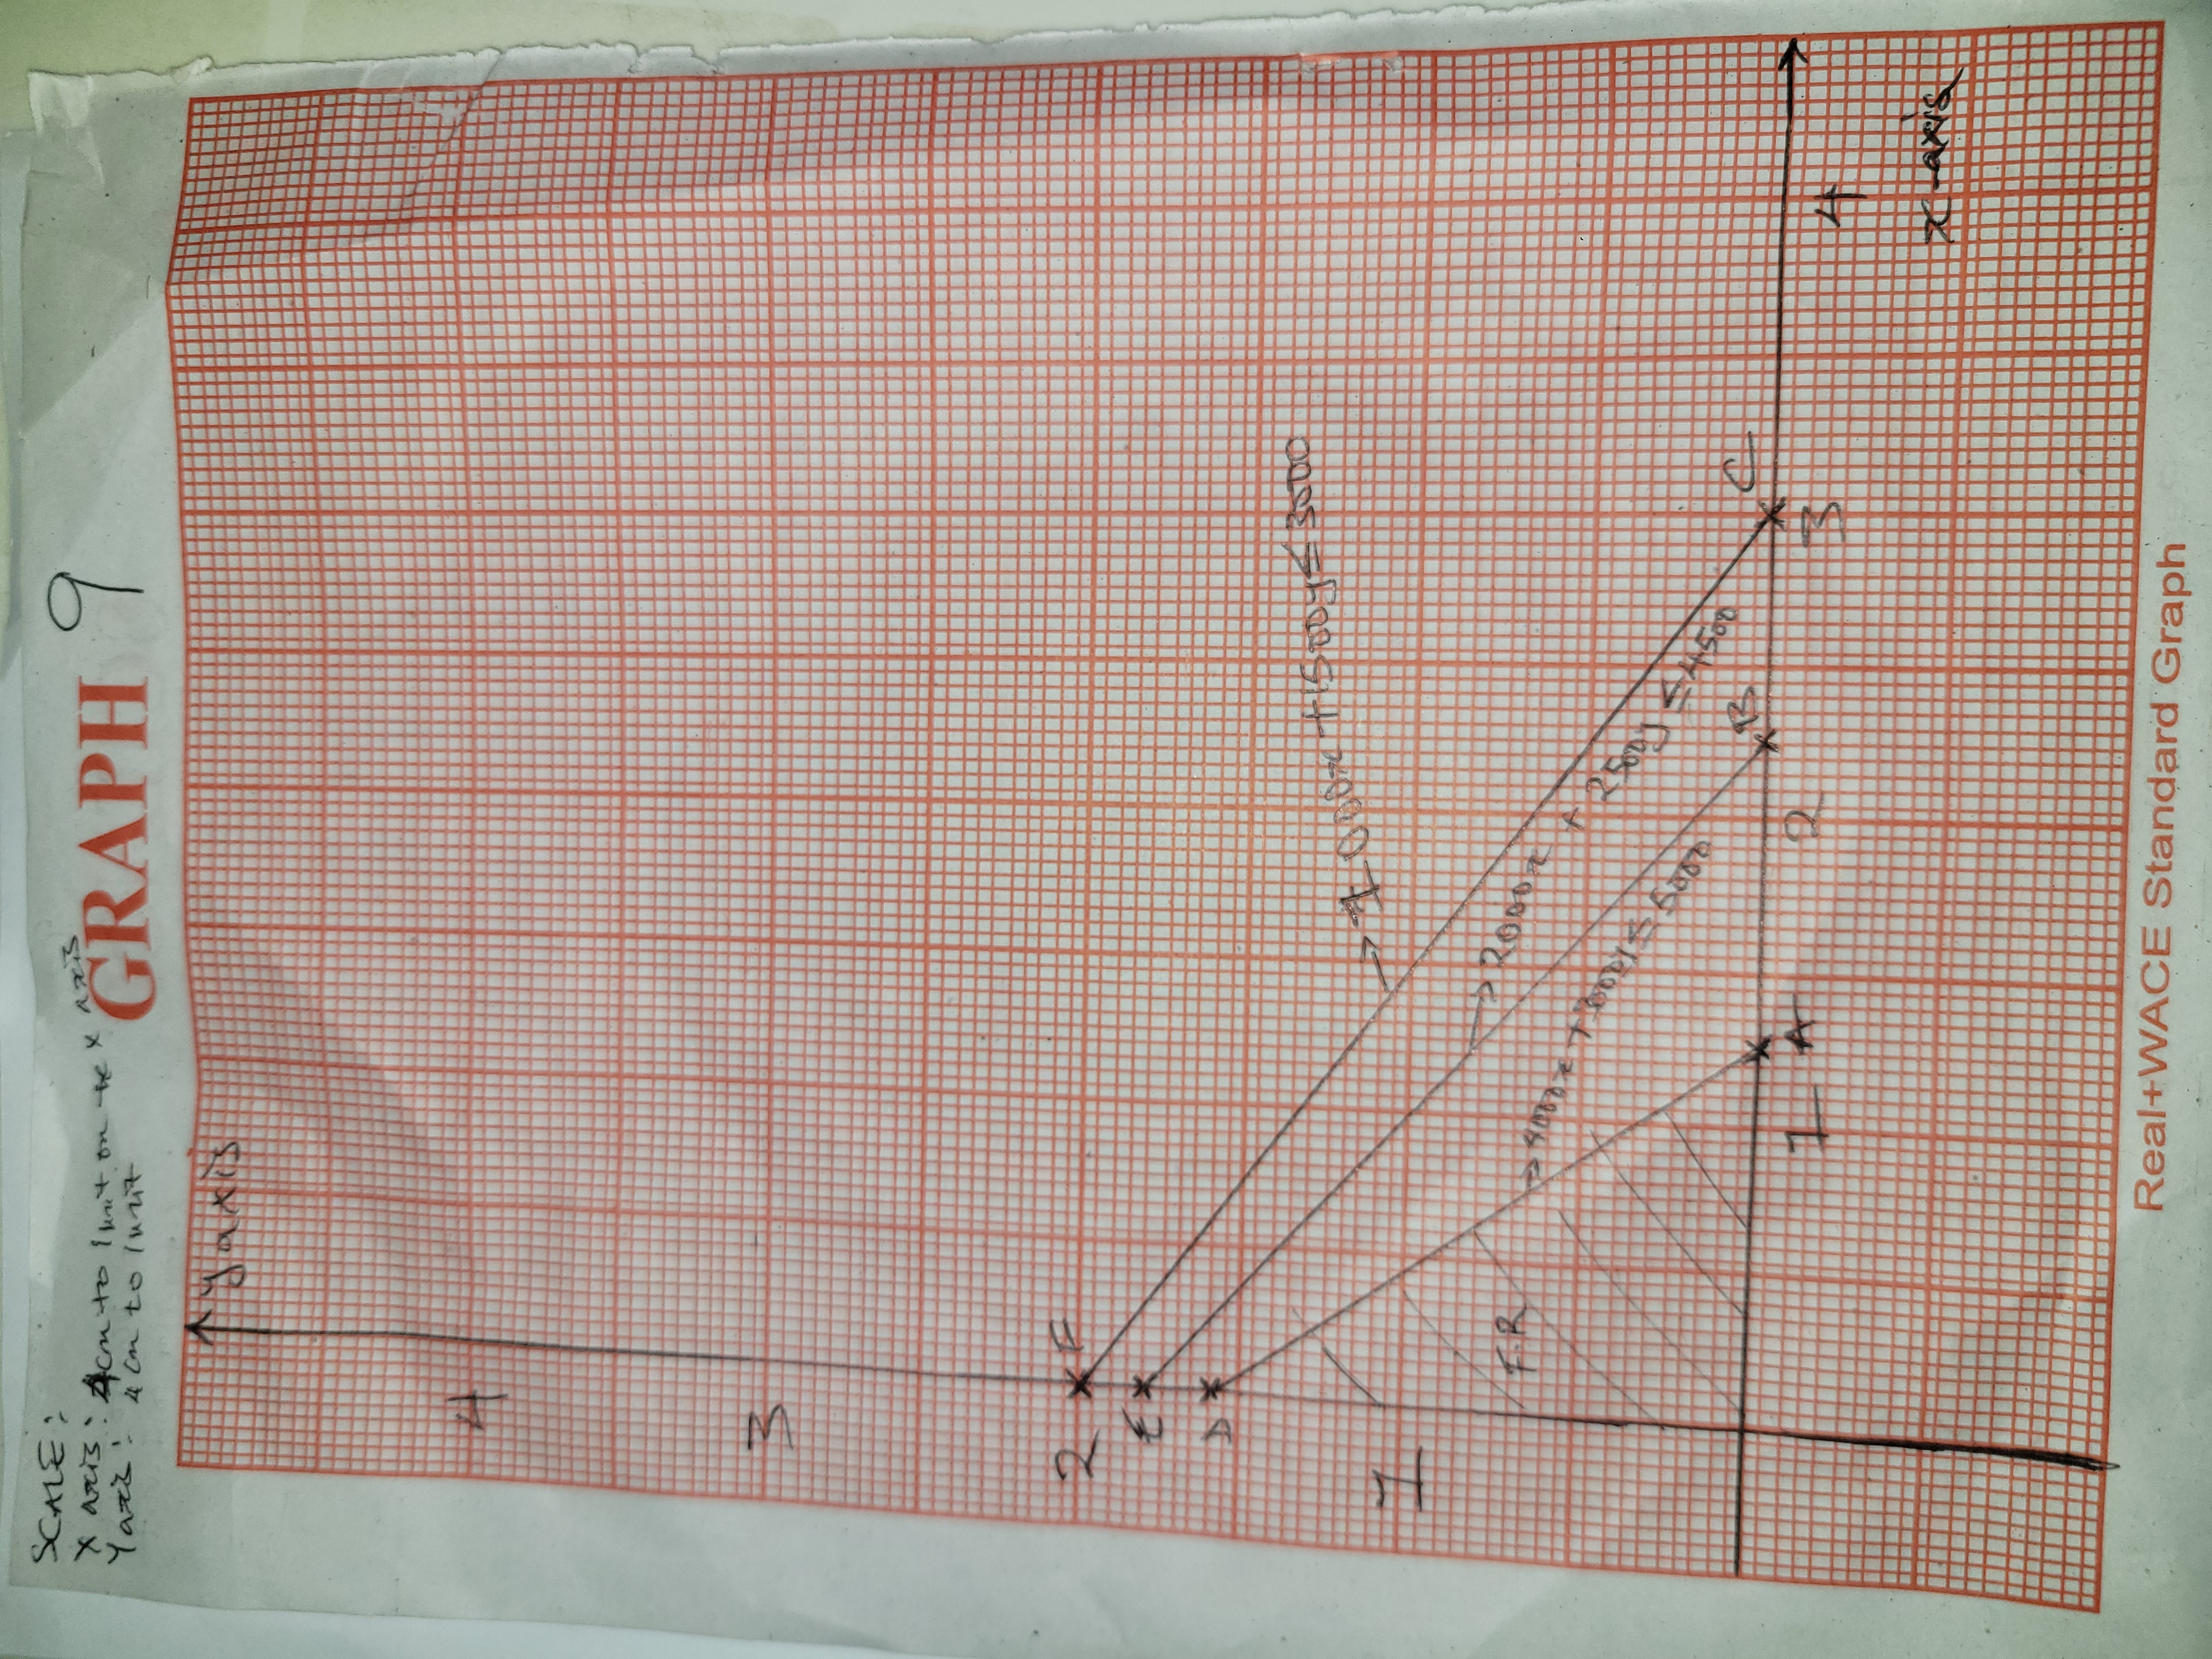 SCALE:
X axis: 4cm to 1unit on the x axis
Y axis: 4cm to 1unit
GRAPH 9
y axis
4
3
2 F
E
D
→ 1000x + 1500y ≤ 3000
1
→ 2000x + 2500y ≤ 4500
F.R
→ 4000x + 3000y ≤ 5000
B C
1 A 2 3 4
x-axis
Real+WACE Standard Graph